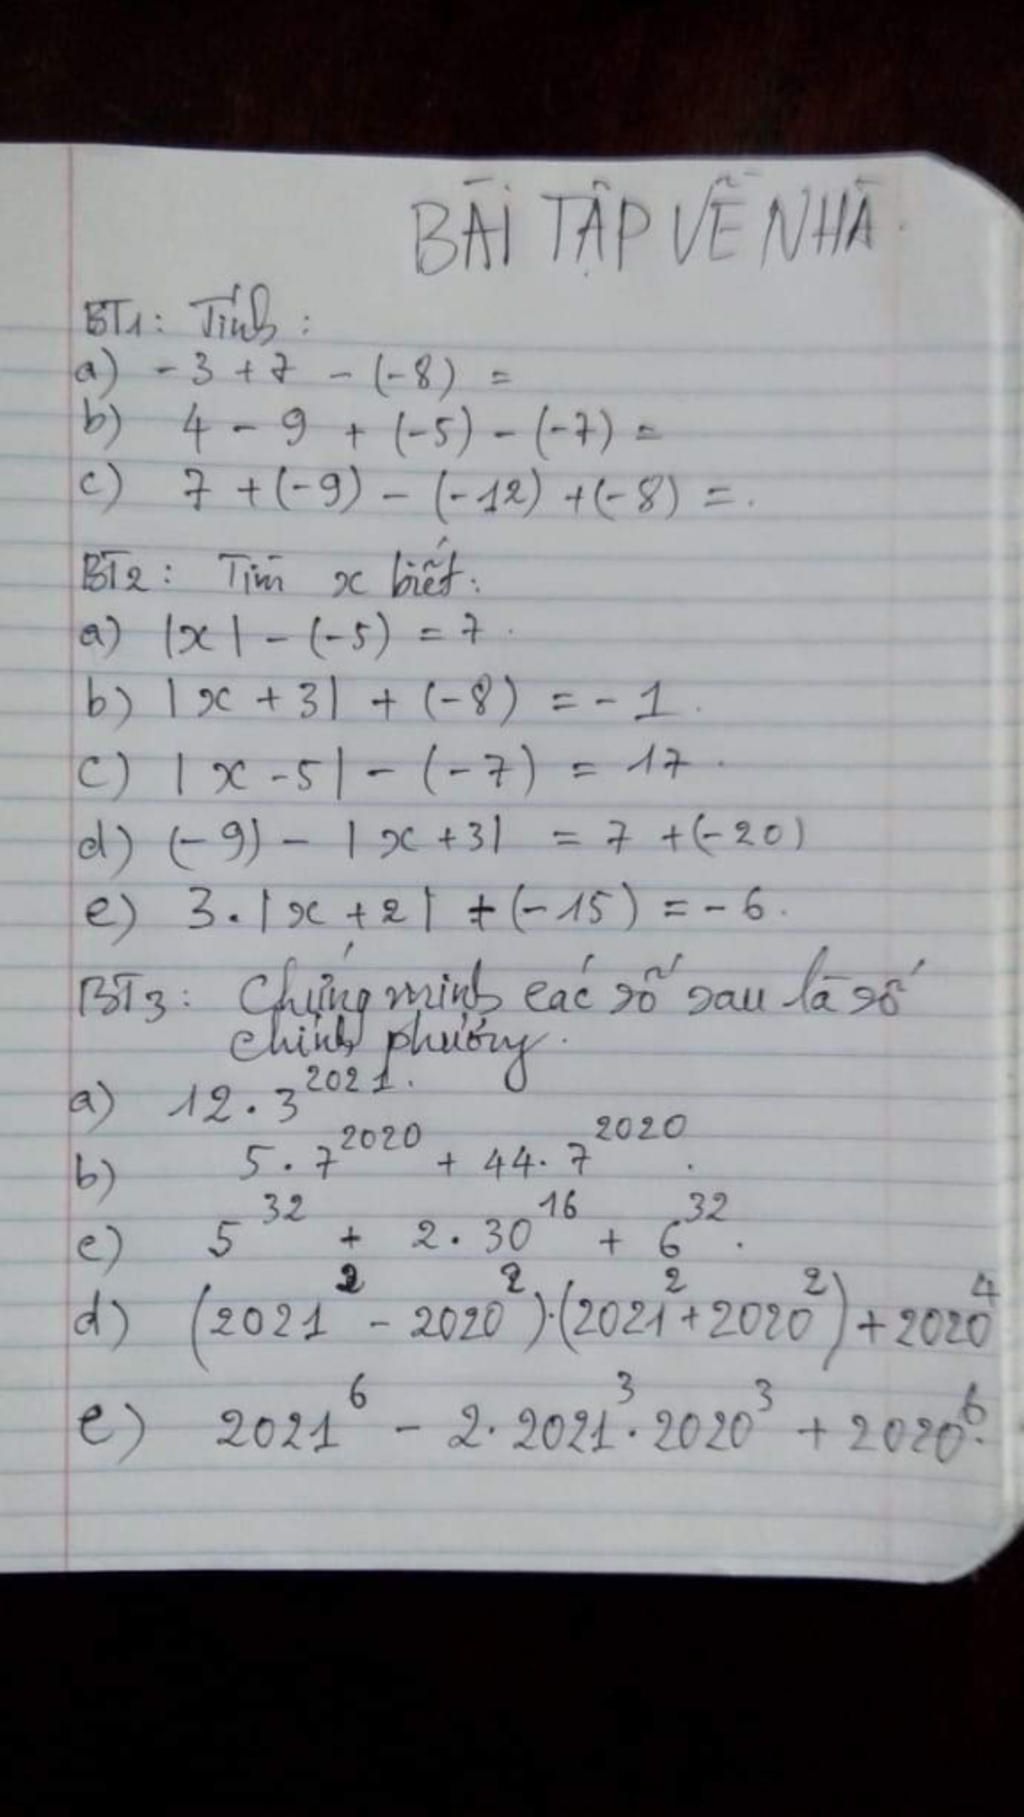 BÀI TẬP VỀ NHÀ.
BT1: Tính:
a) -3 + 7 - (-8) =
b) 4 - 9 + (-5) - (-7) =
c) 7 + (-9) - (-12) + (-8) = .
BT2: Tìm x biết:
a) |x| - (-5) = 7.
b) |x + 3| + (-8) = -1.
c) |x - 5| - (-7) = 17.
d) (-9) - |x + 3| = 7 + (-20)
e) 3.|x + 2| + (-15) = -6.
BT3: Chứng minh các số sau là số
chính phương.
a) 12.3²⁰²¹.
b) 5.7²⁰²⁰ + 44.7²⁰²⁰.
c) 5³² + 2.30¹⁶ + 6³².
d) (2021² - 2020²).(2021² + 2020²) + 2020⁴
e) 2021⁶ - 2.2021³.2020³ + 2020⁶.